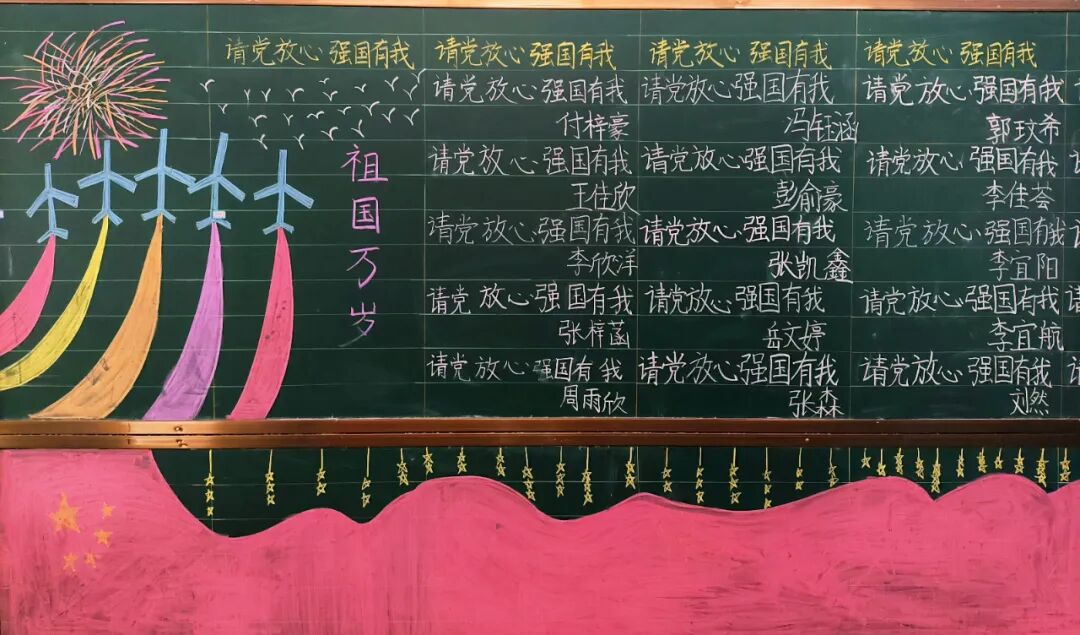 请党放心 强国有我 请党放心 强国有我 请党放心 强国有我 请党放心 强国有我
请党放心 强国有我 请党放心强国有我 请党放心 强国有我
付梓豪 冯钰涵 郭玟希
请党放心 强国有我 请党放心 强国有我 请党放心 强国有我
王佳欣 彭俞豪 李佳荟
请党放心 强国有我 请党放心 强国有我 请党放心 强国有我
李欣洋 张凯鑫 李宜阳
请党放心 强国有我 请党放心 强国有我 请党放心 强国有我
张梓菡 岳文婷 李宜航
请党放心 强国有我 请党放心 强国有我 请党放心 强国有我
周雨欣 张森 刘然
祖国万岁